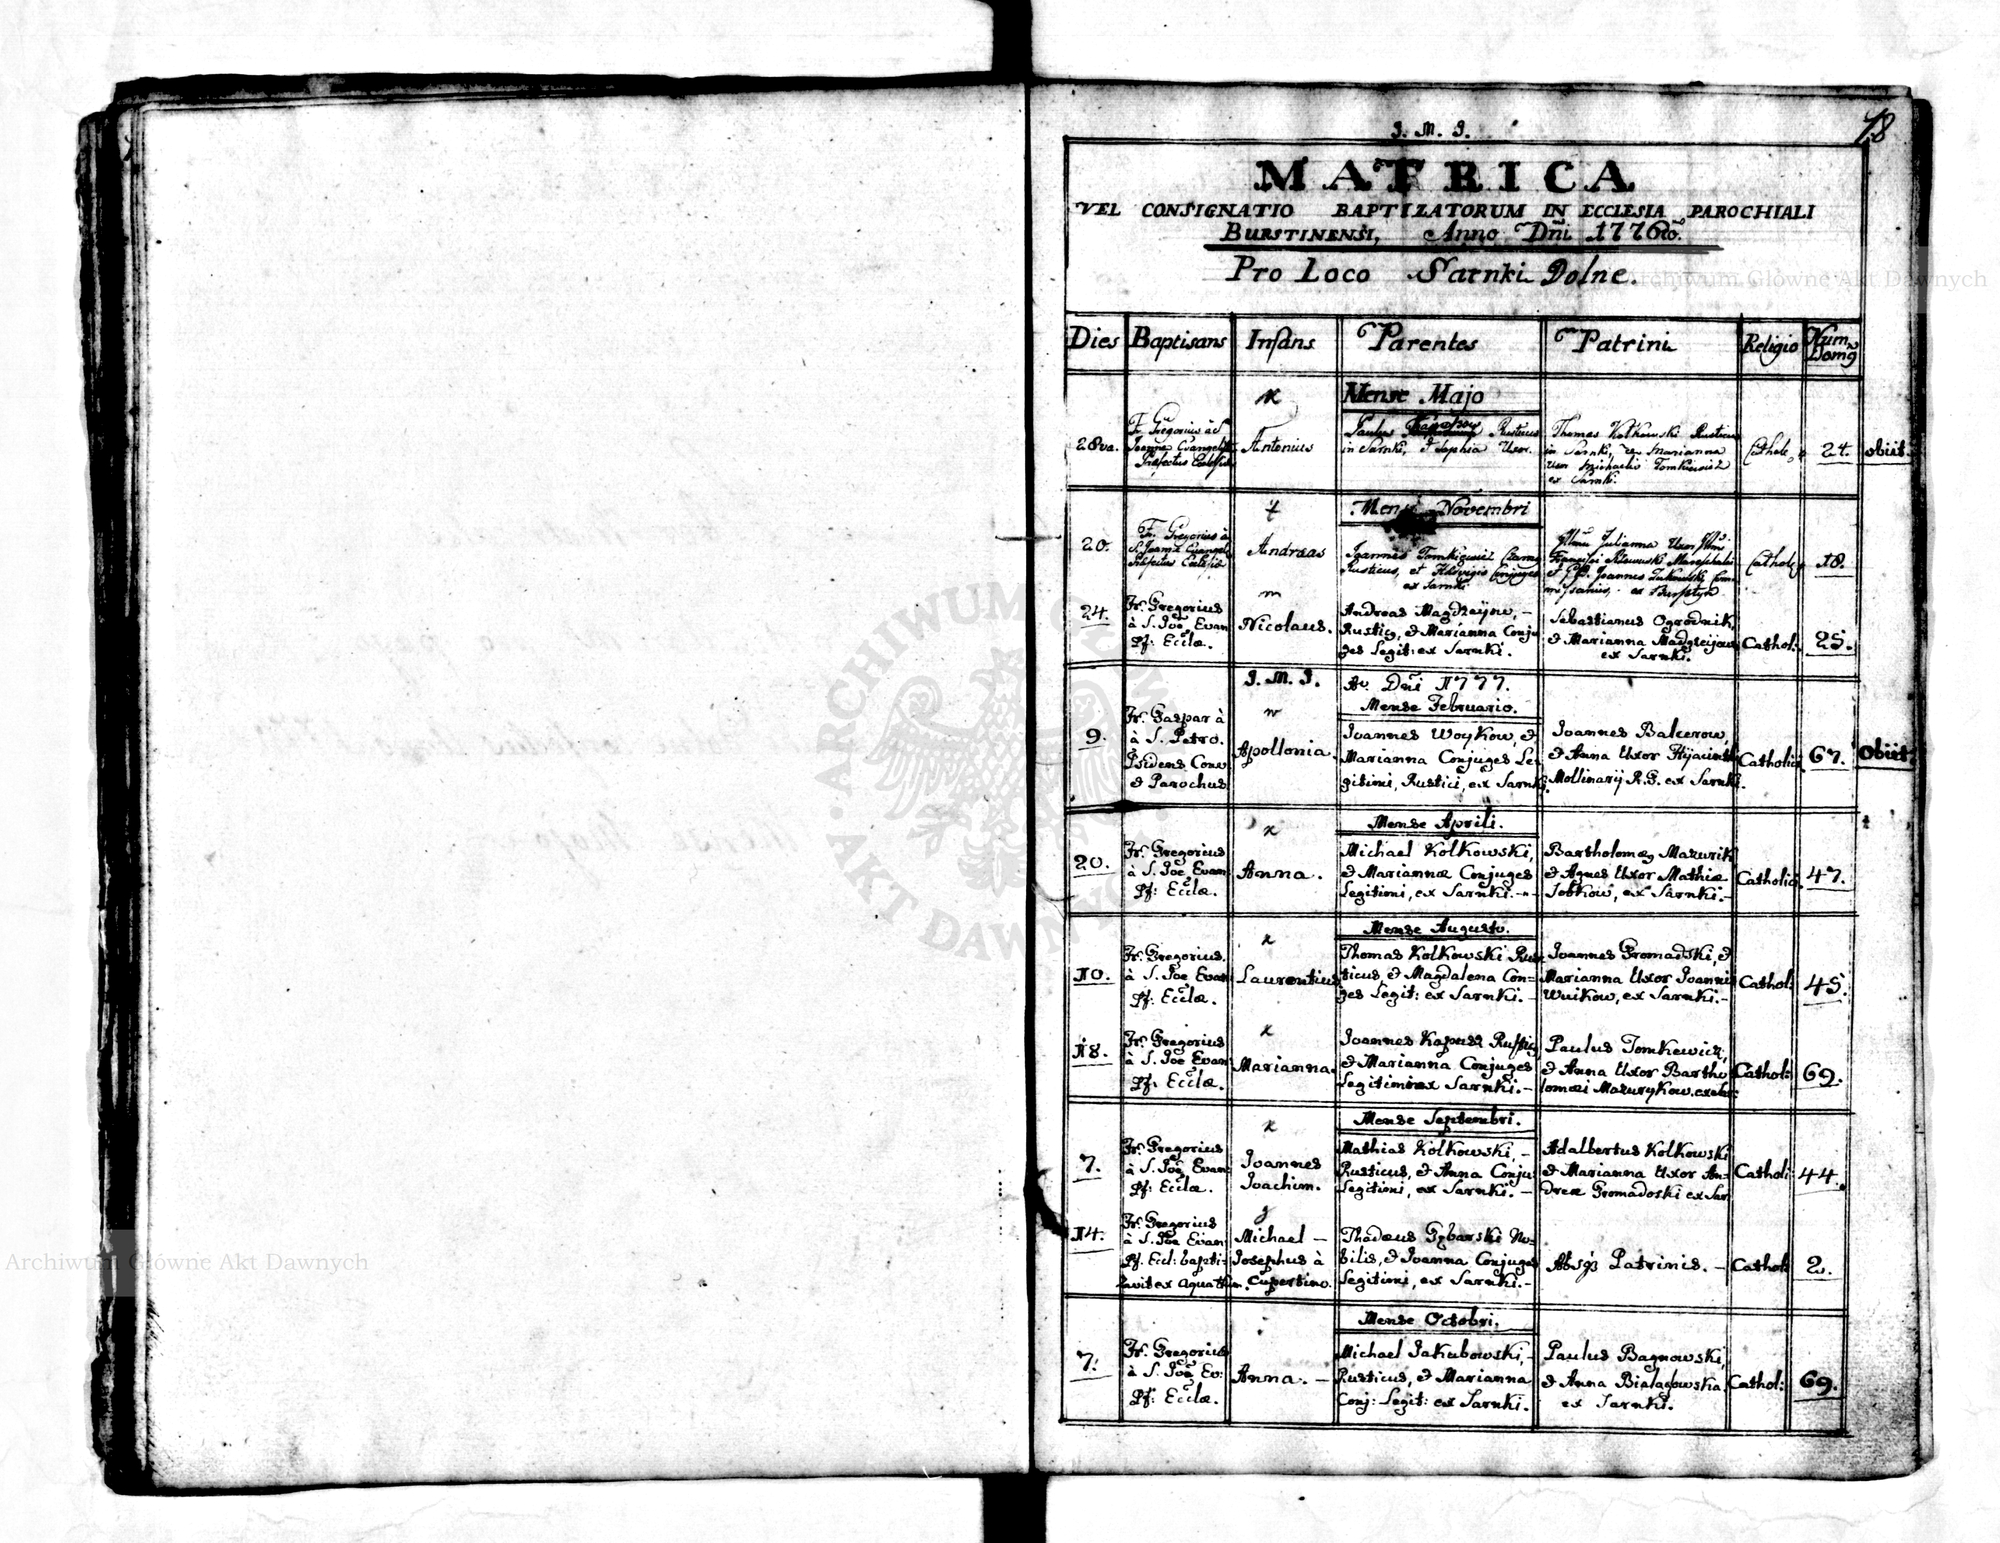 J. M. J.
78
MATRICA
VEL CONSIGNATIO BAPTIZATORUM IN ECCLESIA PAROCHIALI
BURSTINENSI, Anno Dñi 1776to.
Pro Loco Sarnki Dolne.
Dies Baptisans Infans Parentes Patrini Religio Num Domg
Mense Majo
28va.
Fr. Gregorius à S.
Joanne Evangelista
Præfectus Ecclesiæ
Antonius
Paulus Rusticus
in Sarnki, & Sophia Uxor.
Thomas Kolkowski Rusticus
in Sarnki, & Marianna
Uxor Michaelis Tomkiewicz
ex Sarnki.
Cathol.
24.
obiit.
Mense Novembri
20.
Fr. Gregorius à
S. Joanne Evangel.
Præfectus Ecclesiæ
Andreas
Joannes Tomkiewicz
Rusticus, et Hedvigis Conjuges
ex Sarnki
Julianna Uxor
et Joannes
ex Bursztyn
Cathol:
18.
24.
Fr. Gregorius
à S. Joe Evan
Pf: Ecclæ.
Nicolaus.
Andreas Magdzeijow, -
Rusticg, & Marianna Conju
ges Legit: ex Sarnki.
Sebastianus Ogrodnik,
& Marianna Madgzeijow
ex Sarnki.
Cathol:
25.
J. M. J.
Ao. Dñi 1777.
Mense Februario.
9.
Fr. Gaspar à
à S. Petro.
Præsidens Conv.
& Parochus
Apollonia.
Joannes Woykow, &
Marianna Conjuges Le
gitimi, Rustici, ex Sarnki.
Joannes Balcerow,
& Anna Uxor Hyacinthi
Mollinarij R. G. ex Sarnki.
Catholici.
67.
Obiit.
Mense Aprili.
20.
Fr. Gregorius
à S. Joe Evan
Pf: Ecclæ.
Anna.
Michael Kolkowski,
& Mariannæ Conjuges
Legitimi, ex Sarnki. -
Bartholomæg Mazurik
& Agnes Uxor Mathiæ
Jobkow, ex Sarnki. -
Catholici.
47.
Mense Augusto.
10.
Fr. Gregorius.
à S. Joe Evan
Pf: Ecclæ.
Laurentius
Thomas Kolkowski Rus
ticus, & Magdalena Con=
ges Legit: ex Sarnki. -
Joannes Gromadski, &
Marianna Uxor Joannis
Wuikow, ex Sarnki. -
Cathol:
45.
18.
Fr. Gregorius
à S. Joe Evan
Pf: Ecclæ.
Marianna.
Joannes Kapusz Rusticg
& Marianna Conjuges
Legitimi ex Sarnki. -
Paulus Tomkewicz,
& Anna Uxor Bartho
lomæi Mazurykow. ex Sar:
Cathol:
69.
Mense Septembri.
7.
Fr. Gregorius
à S. Joe Evan
Pf: Ecclæ.
Joannes
Joachim.
Mathias Kolkowski, -
Rusticus, & Anna Conju:
Legitimi, ex Sarnki. -
Adalbertus Kolkowski
& Marianna Uxor An-
dreæ Gromadoski ex Sar.
Cathol:
44.
14.
Fr. Gregorius
à S. Joe Evan
Pf. Eccl: bapti-
zavit ex aqua tm.
Michael -
Josephus à
Cupertino.
Thadæus Gzbarski No-
bilis, & Joanna Conjuges
Legitimi, ex Sarnki. -
Absq3 Patrinis. -
Cathol:
2.
Mense Octobri.
7.
Fr. Gregorius
à S. Joe Ev:
Pf: Ecclæ.
Anna. -
Michael Jakubowski, -
Rusticus, & Marianna
Conj: Legit: ex Sarnki.
Paulus Bagnowski,
& Anna Bialagowska
ex Sarnki.
Cathol:
69.
Archiwum Główne Akt Dawnych
Archiwum Główne Akt Dawnych
ARCHIWUM GŁÓWNE AKT DAWNYCH